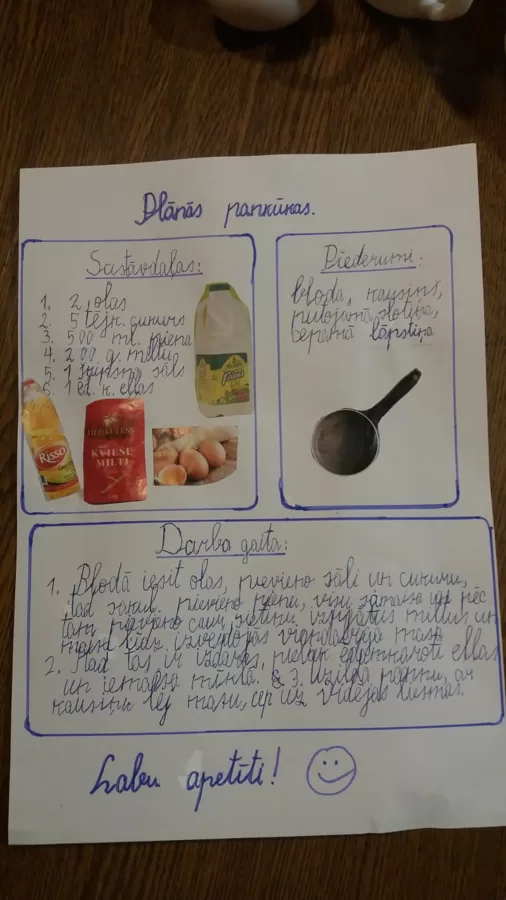 Plānās pankūkas.
Sastāvdaļas:
1. 2 olas
2. 5 tējk. cukurs
3. 500 ml. piena
4. 200 g. miltu
5. 1 šķipsna sāls
6. 1 ēd. k. eļļas
piens
RISSO
HERKULESS
KVIEŠU
MILTI
Piederumi:
bļoda, kausiņš,
putojamā slotiņa,
cepamā lāpstiņa
Darba gaita:
1. Bļodā iesit olas, pievieno sāli un cukuru,
tad pievieno pienu, visu samaisa un pēc
tam pievieno caur sietiņu izsijātus miltus un
maisa līdz izveidojas viendabīga masa
2. Kad tas ir izdarīts, pielej ēdamkaroti eļļas
un iemaisa mīklā. 3. Uzkarsē pannu, ar
kausiņu lej masu, cep uz vidējas liesmas.
Labu apetīti!